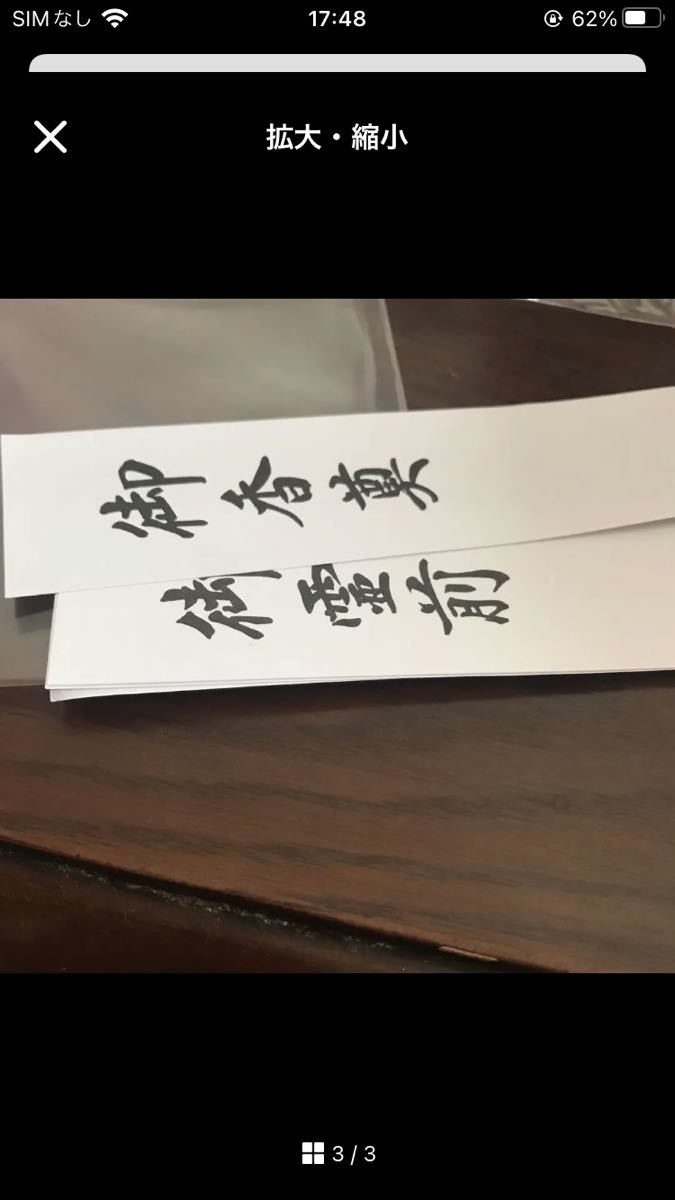 SIMなし 17:48 62%
拡大・縮小
御香奠
御霊前
3 / 3